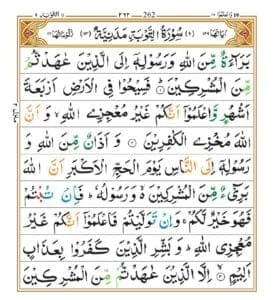 262
سُوْرَةُ التَّوْبَةِ مَدَنِيَّةٌ
بَرَآءَةٌ مِّنَ اللّٰهِ وَرَسُوْلِهٖۤ اِلَى الَّذِيْنَ عٰهَدْتُّمْ
مِّنَ الْمُشْرِكِيْنَ ۝ فَسِيْحُوْا فِى الْاَرْضِ اَرْبَعَةَ
اَشْهُرٍ وَّاعْلَمُوْۤا اَنَّكُمْ غَيْرُ مُعْجِزِى اللّٰهِ ۙ وَاَنَّ
اللّٰهَ مُخْزِى الْكٰفِرِيْنَ ۝ وَاَذَانٌ مِّنَ اللّٰهِ وَ
رَسُوْلِهٖۤ اِلَى النَّاسِ يَوْمَ الْحَجِّ الْاَكْبَرِ اَنَّ اللّٰهَ
بَرِىْٓءٌ مِّنَ الْمُشْرِكِيْنَ ۙ وَرَسُوْلُهٗ ؕ فَاِنْ تُبْتُمْ
فَهُوَ خَيْرٌ لَّكُمْ ۚ وَاِنْ تَوَلَّيْتُمْ فَاعْلَمُوْۤا اَنَّكُمْ غَيْرُ
مُعْجِزِى اللّٰهِ ؕ وَبَشِّرِ الَّذِيْنَ كَفَرُوْا بِعَذَابٍ
اَلِيْمٍ ۝ اِلَّا الَّذِيْنَ عٰهَدْتُّمْ مِّنَ الْمُشْرِكِيْنَ